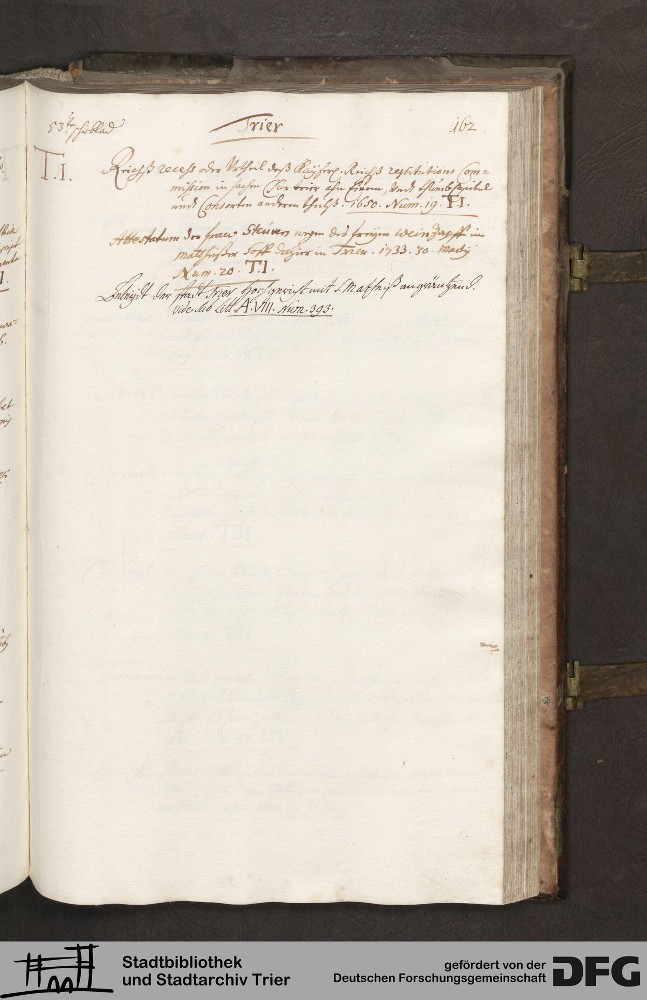 53te schublad Trier 162
T.I. Reichß recess oder Urtheil deß Kayserl. Reichß restitutions Com=
mission in sachen Chur trier ahn einem, undt thumb Capitel
undt Consorten anderen theilß. 1650. Num. 19 T.I.
Attestatum der frauen Steuren wegen des freyen weinzapff in
mattheißer hoff dahier in Trier. 1733. 30. Maÿ
Num. 20. T.I.
der stadt Trier hochgericht mit S. Mattheiß angräntzend.
vide sub litt A. VIII. Num. 393.
Stadtbibliothek
und Stadtarchiv Trier
gefördert von der
Deutschen Forschungsgemeinschaft
DFG